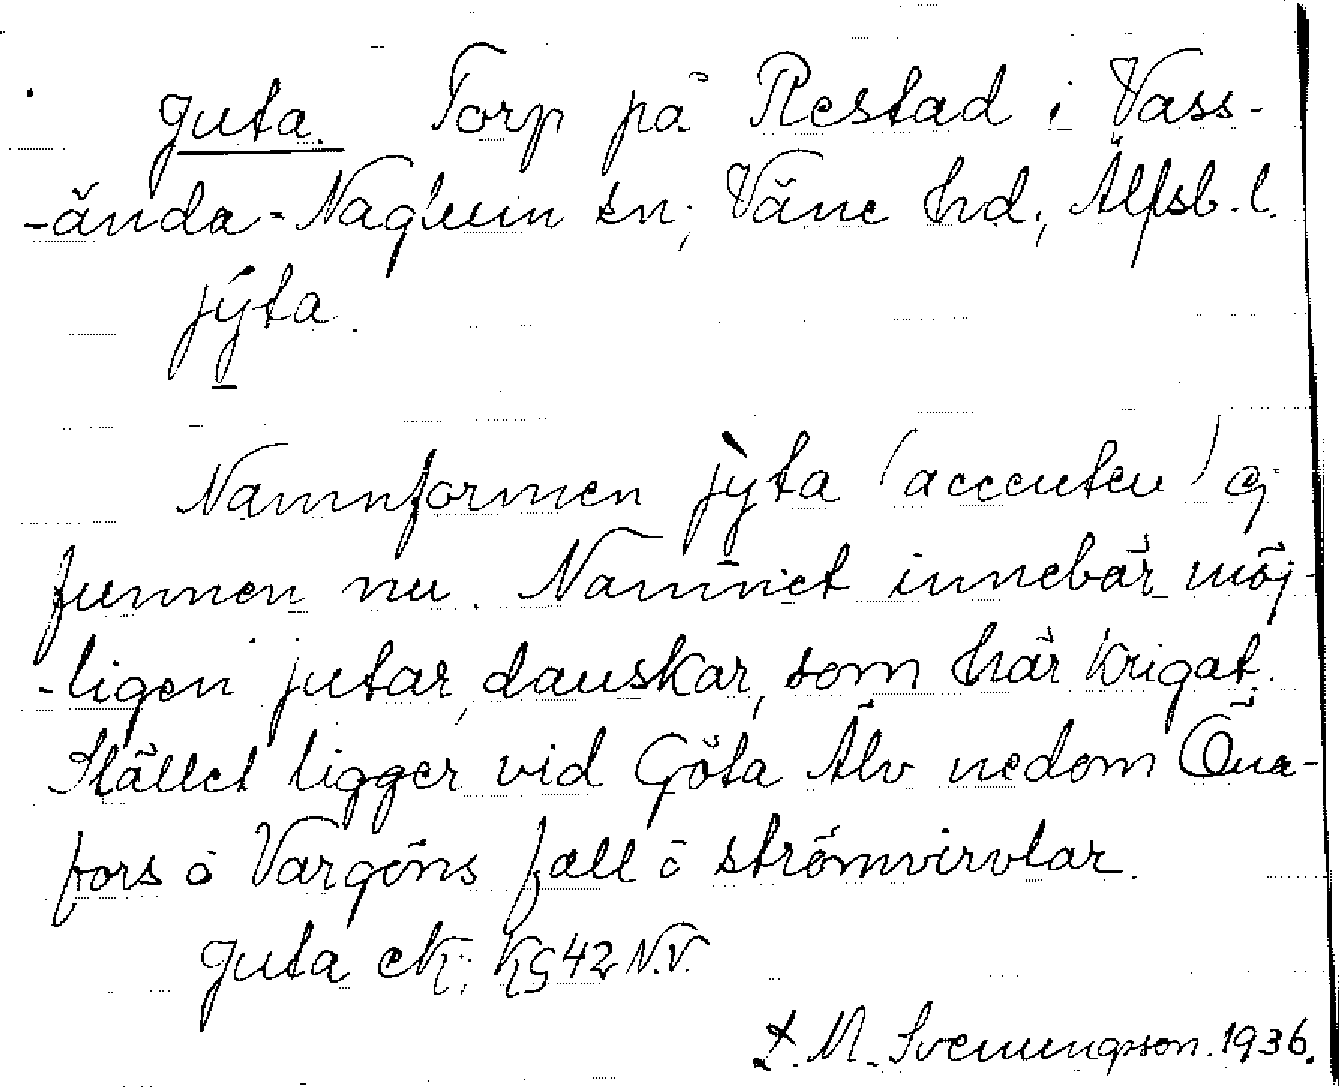 Juta. Torp på Restad i Vass-
-ända-Naglum sn; Väne hrd, Älfsb. l.
jýta.
Namnformen jỳta (accenten) ej
funnen nu. Namnet innebär möj-
-ligen jutar, danskar, som här krigat.
Stället ligger vid Göta Älv nedom Öna-
fors o Vargöns fall o strömvirvlar.
Juta ek; KG 42 N.V.
L. M. Svenungsson. 1936.